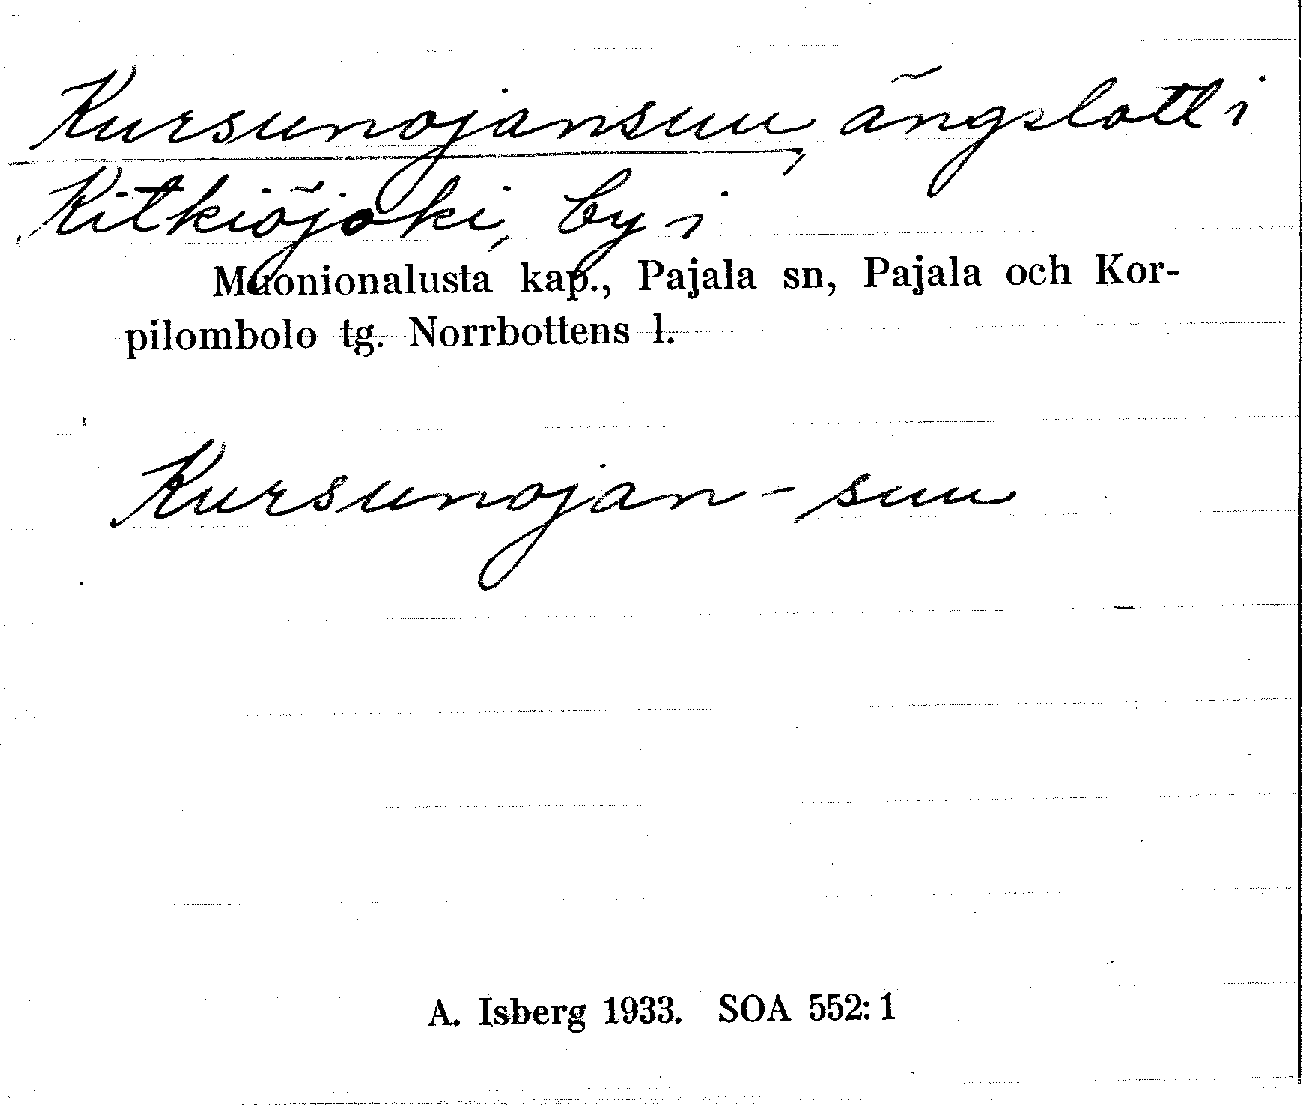 Kursunojansuu, ängslott i
Kitkiöjoki, by i
Muonionalusta kap., Pajala sn, Pajala och Kor-
pilombolo tg. Norrbottens l.
Kursunojan - suu
A. Isberg 1933. SOA 552:1